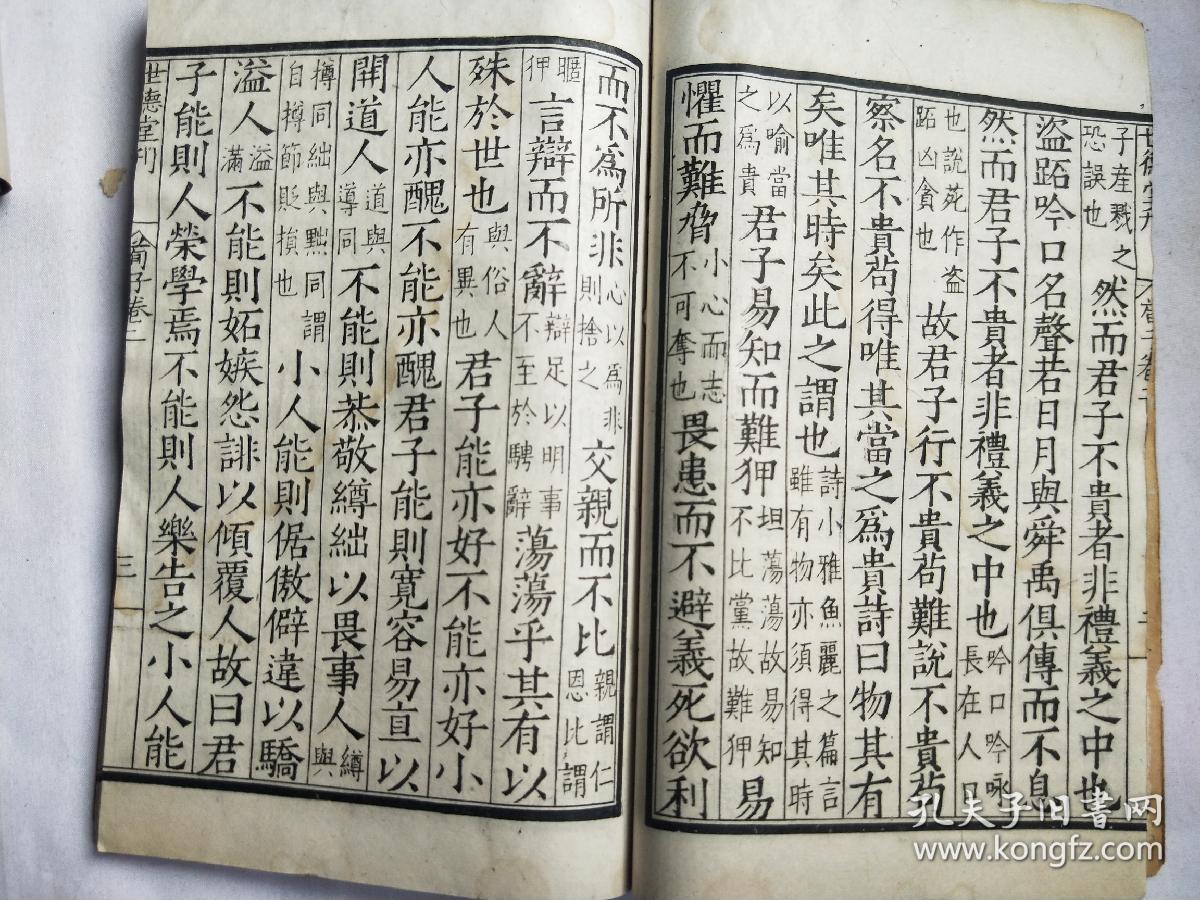 世德堂刊
子產戮之恐誤也然而君子不貴者非禮義之中也
盜跖吟口名聲若日月與舜禹俱傳而不息
然而君子不貴者非禮義之中也吟口吟咏長在人口
也說苑作盜跖凶貪也故君子行不貴苟難說不貴苟
察名不貴苟得唯其當之爲貴詩曰物其有
矣唯其時矣此之謂也詩小雅魚麗之篇言雖有物亦須得其時
以喻當之爲貴君子易知而難狎坦蕩蕩故易知不比黨故難狎易
懼而難脅小心而志不可奪也畏患而不避義死欲利
而不爲所非心以爲非則捨之交親而不比親謂仁恩比謂
暱狎言辯而不辭辯足以明事不至於騁辭蕩蕩乎其有以
殊於世也與俗人有異也君子能亦好不能亦好小
人能亦醜不能亦醜君子能則寬容易直以
開道人道與導同不能則恭敬繜絀以畏事人繜與
撙同絀與黜同謂自撙節貶損也小人能則倨傲僻違以驕
溢人溢滿不能則妬嫉怨誹以傾覆人故曰君
子能則人榮學焉不能則人樂告之小人能
世德堂刊 荀子卷二 三
孔夫子旧书网
www.kongfz.com